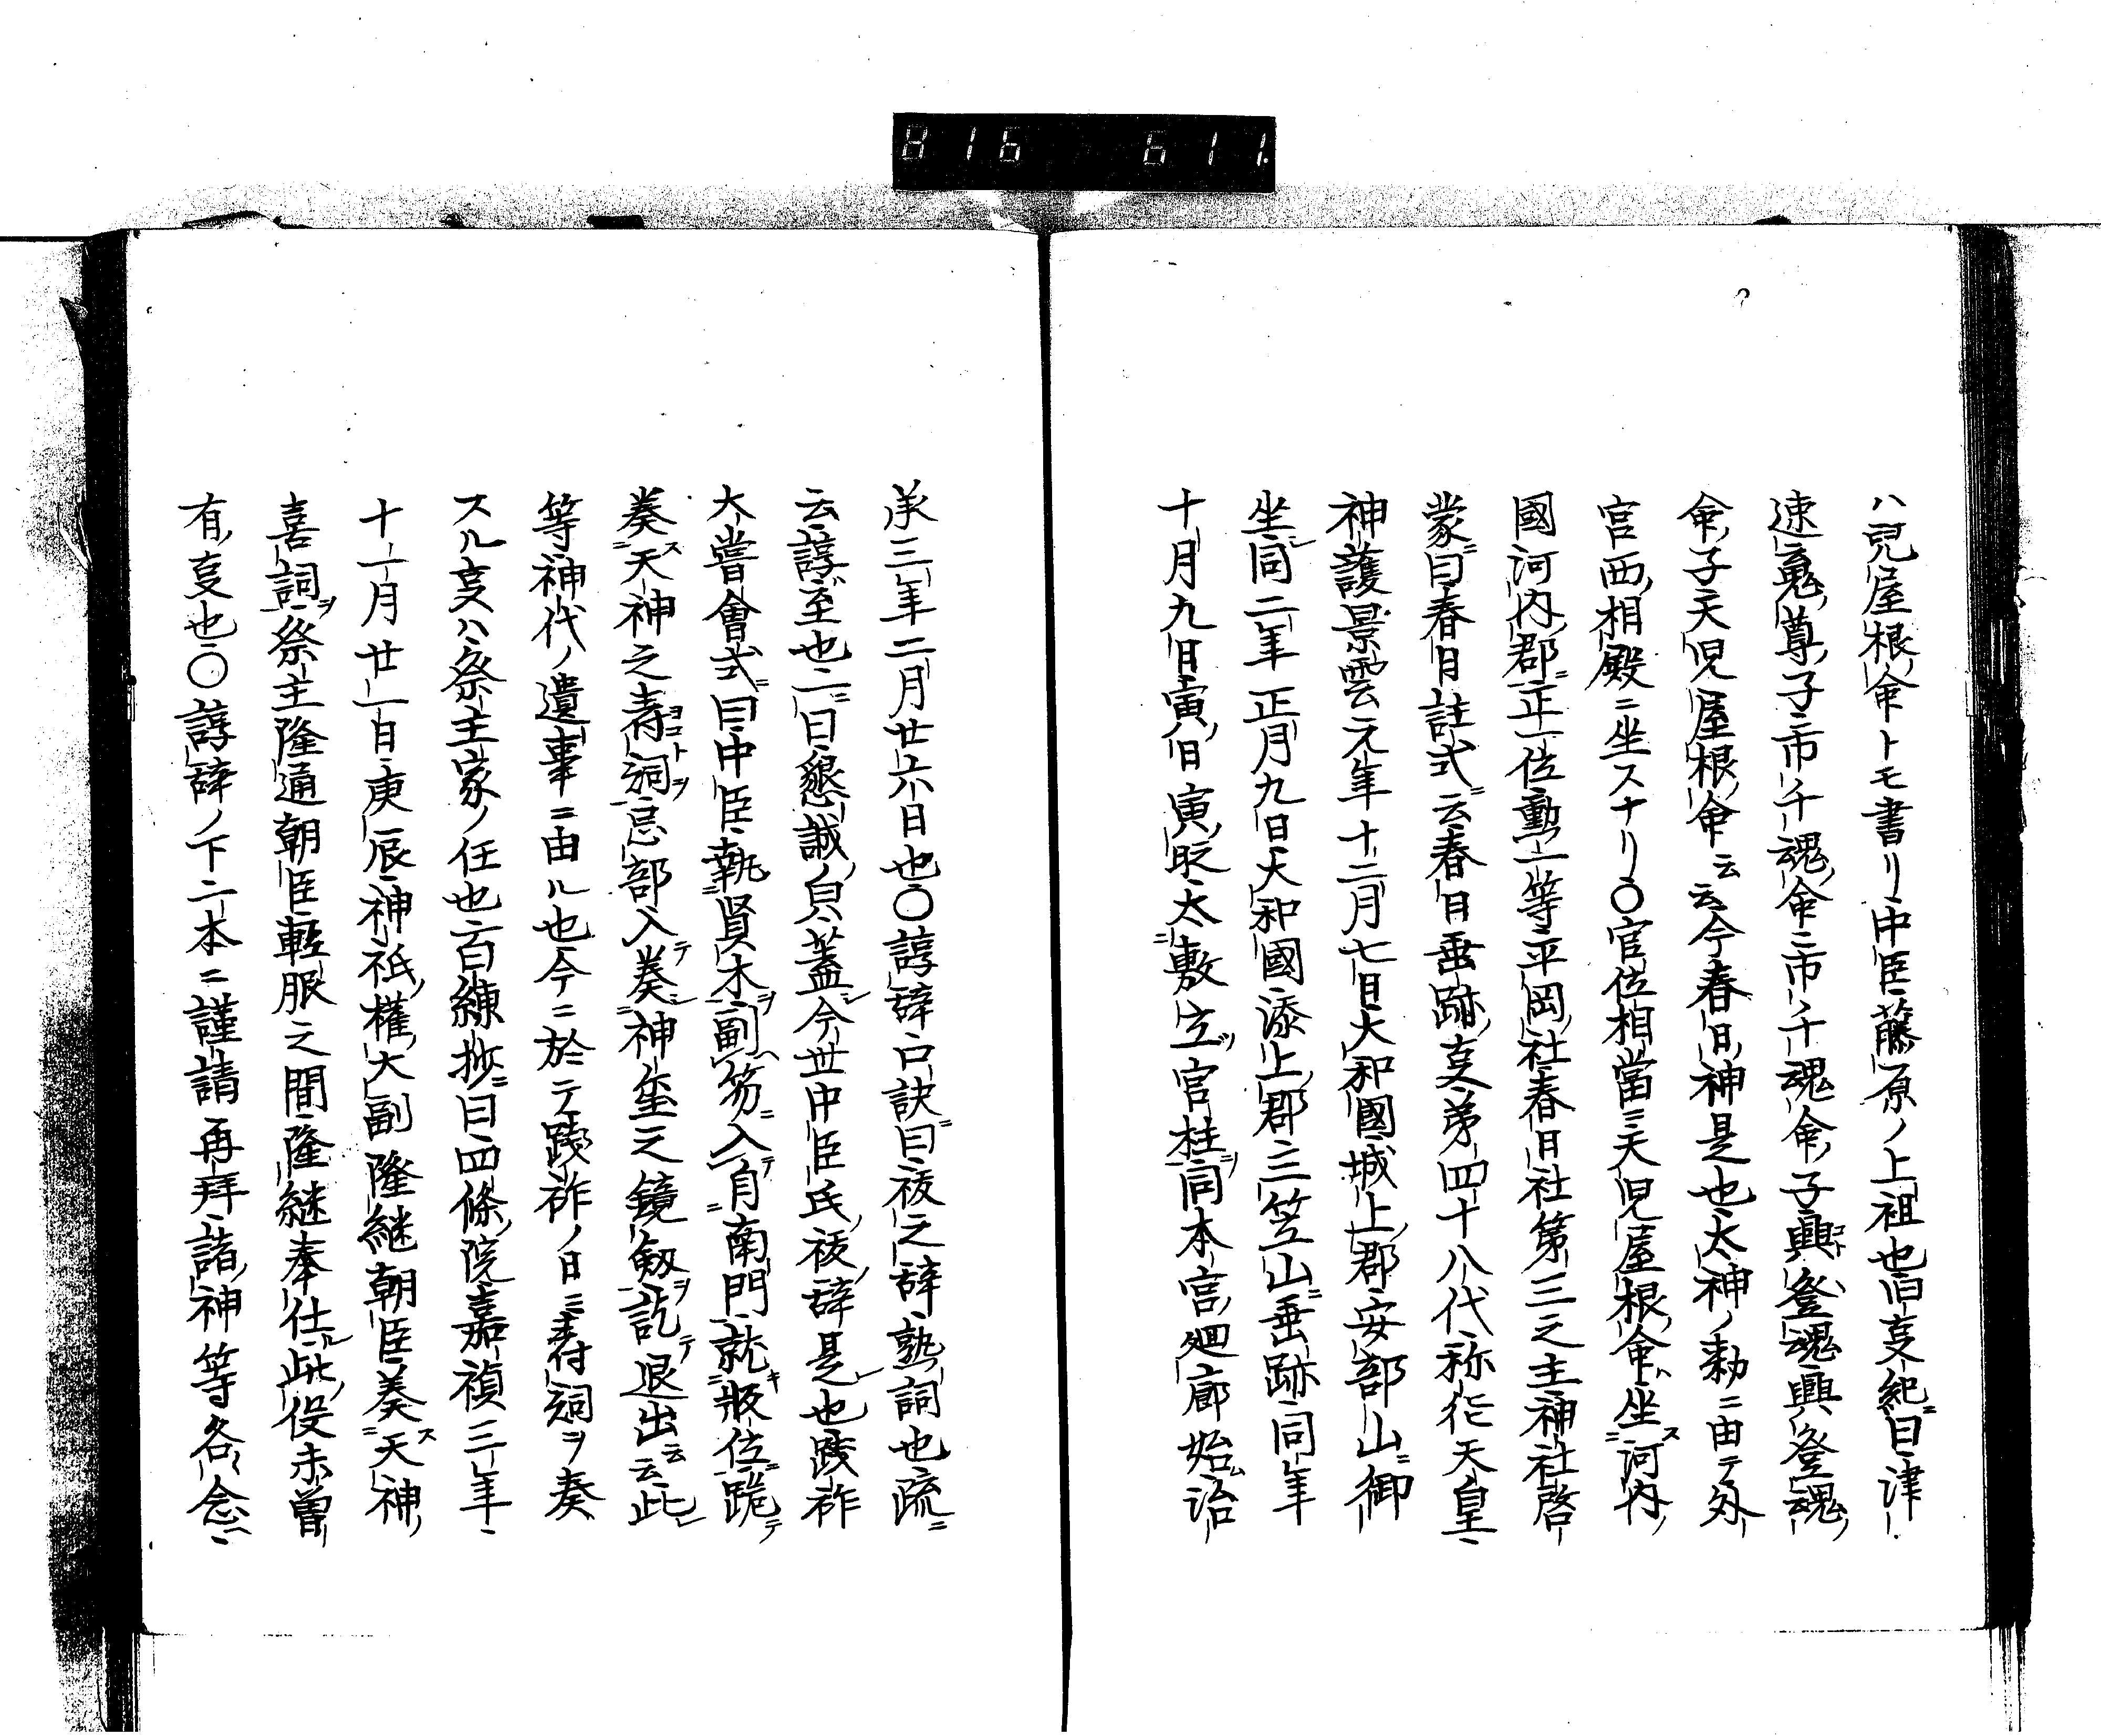 816 611.
ハ児屋根命トモ書リ中臣藤原ノ上祖也旧事紀曰津
速䰟尊子市千魂命市千魂命子興登魂興登魂
命子天児屋根命云云今春日神是也太神ノ勅ニ由テ外
宮西相殿ニ坐スナリ〇官位相當ニ天児屋根命ハ坐河内
國河内郡正一位勳一等平岡社春日社第三之主神社啓
蒙曰春日註式云春日垂跡事第四十八代称天皇
神護景雲元年十二月七日大和國城上郡安部山御
坐同二年正月九日大和國添上郡三笠山垂跡同年
十月九日寅日寅㫝太敷立宮柱同本宮廻廊始治
承三年二月廿六日也〇諄辞口訣曰祓之辞熟詞也疏
云諄至也一曰懇誠皃蓋今世中臣氏祓辞是也践祚
大嘗會式曰中臣執賢木副笏入自南門就版位跪
奏天神之寿詞忌部入奏神璽之鏡剱訖退出云云此
等神代ノ遺事ニ由ル也今ニ於テ践祚ノ日ニ寿詞ヲ奏
スル事ハ祭主家ノ任也百練抄曰四條院嘉禎三年
十一月廿一日庚辰神祇權大副隆継朝臣奏天神
喜詞祭主隆通朝臣軽服之間隆継奉仕此役未曽
有事也〇諄辞ノ下一本ニ謹請再拜諸神等各念